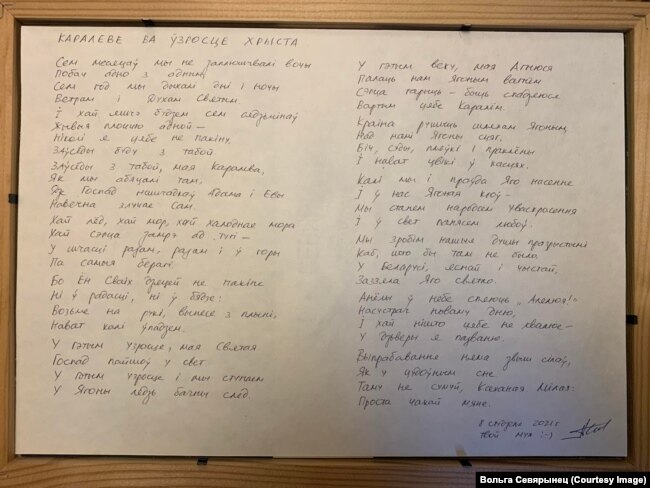 КАРАЛЕВЕ ВА ЎЗРОСЦЕ ХРЫСТА
Сем месяцаў мы не заплюшчвалі вочы
Побач адно з адным,
Сем год мы дыхам дні і ночы
Ветрам і Духам Святым
І хай яшчэ будзем сем сядзьмінаў
Жывая плоццю адной —
Ніколі я цябе не пакіну,
Заўсёды буду з табой
Заўсёды з табой, мая Каралева,
Як мы абяцалі там,
Дзе Гасподзь нашчадкаў Адама і Евы
Навечна злучае Сам.
Хай лёд, хай мор, хай халоднае мора
Хай сэрца замрэ ад тугі —
У шчасці разам, разам і ў горы
Па самыя берагі.
Бо Ён Сваіх дзяцей не пакіне
Ні ў радасці, ні ў бядзе:
Возьме на рукі, вынесе з плыні,
Нават калі ўпадзем.
У гэтым узросце, мая Святая
Госпад пайшоў у свет
У гэтым узросце і мы ступаем
У Ягоны ледзь бачны след.
У гэтым веку, мая Агнюся
Палаць нам Ягоным вагнём
Сэрца гарыць — быць спадзяюся
Вартым цябе Каралём.
Краіна рушыць шляхам Ягоным,
Над намі Ягоны сцяг.
Біч, суды, пляўкі і праклёны
І нават цвікі ў касцях.
Калі мы і праўда Яго насенне
І ў нас Ягоная кроў —
Мы станем народам Уваскрасення
І ў свет панясем любоў.
Мы зробім нашыя душы прыгожымі
Каб, што бы там не было.
У Беларусі, яснай і чыстай,
Ззяла Яго святло.
Анёлы ў небе спяюць „Алелюя!"
Насустрач новаму дню,
І хай нішто цябе не хвалюе —
У дзверы я пазваню.
Выпрабавання няма звыш сілаў,
Як у цудоўным сне.
Таму не сумуй, Каханая Мілая:
Проста чакай мяне.
8 студзеня 2021 г
твой муж :-)
Вольга Севярынец (Courtesy Image)